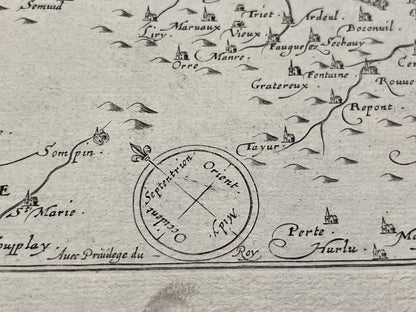 Semuid
Triet
Ardeul
Boconuil
Marvaux
Vieux
Liry
Fauguesez
Sechauy
Manre
Orre
Fontaine
Gratereux
Repont
Sompin
Tayur
Orient
Septentrion
Occident
Midy
St Marie
Perte
Hurlu
Auec Priuilege du
Roy